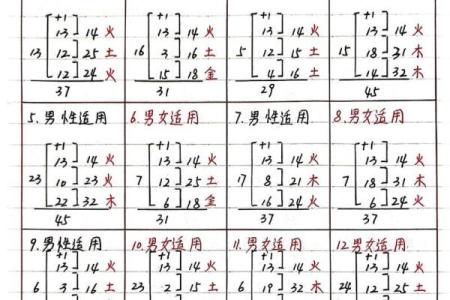 +1 +1 +1 +1
13 14 火 13 14 火 13 14 火 13 14 火
13 12 25 土 16 3 16 土 5 12 15 土 15 18 31 木
12 24 火 15 18 金 4 16 土 14 32 木
37 31 29 45
5.男性适用 6.男女适用 7.男性适用 8.男女适用
+1 +1 +1 +1
13 14 火 13 14 火 13 14 火 13 14 火
23 10 23 火 7 12 25 土 17 8 21 木 7 18 31 木
22 32 木 6 18 金 16 24 火 6 24 火
45 31 37 37
9.男性适用 10.男女适用 11.男女适用 12.男女适用
+1 +1 +1 +1
13 14 火 13 14 火 13 14 火 13 14 火
6 3 16 土 23 2 15 土 6 19 32 木 24 12 25 土